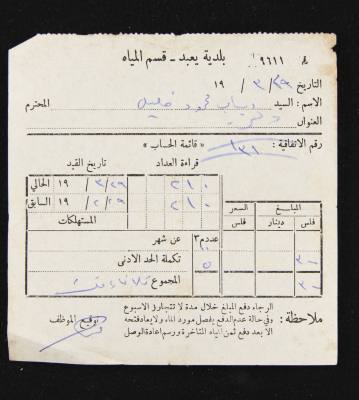 ٩٦١١ بلدية يعبد ـ قسم المياه
التاريخ ٢٩/٣/ ١٩
الاسم : السيد ذياب محمود خليل المحترم
العنوان
رقم الاتفاقية : ١٣١
« قائمة الحساب »
قراءة العداد تاريخ القيد
٢١٠ الحالي ٢٩/٣/ ١٩
٢١٠ السابق ٢٩/٢/ ١٩
المستهلكات
المبلغ السعر
فلس دينار فلس
عدد م٣ عن شهر
٣٠٠ ٥ تكملة الحد الادنى
٣٠٠ المجموع
ملاحظة :
الرجاء دفع المبلغ خلال مدة لا تتجاوز الاسبوع
وفي حالة عدم الدفع يفصل مورد الماء ولا يعاد فتحه
الا بعد دفع ثمن المياه المتأخرة ورسم اعادة الوصل
توقيع الموظف